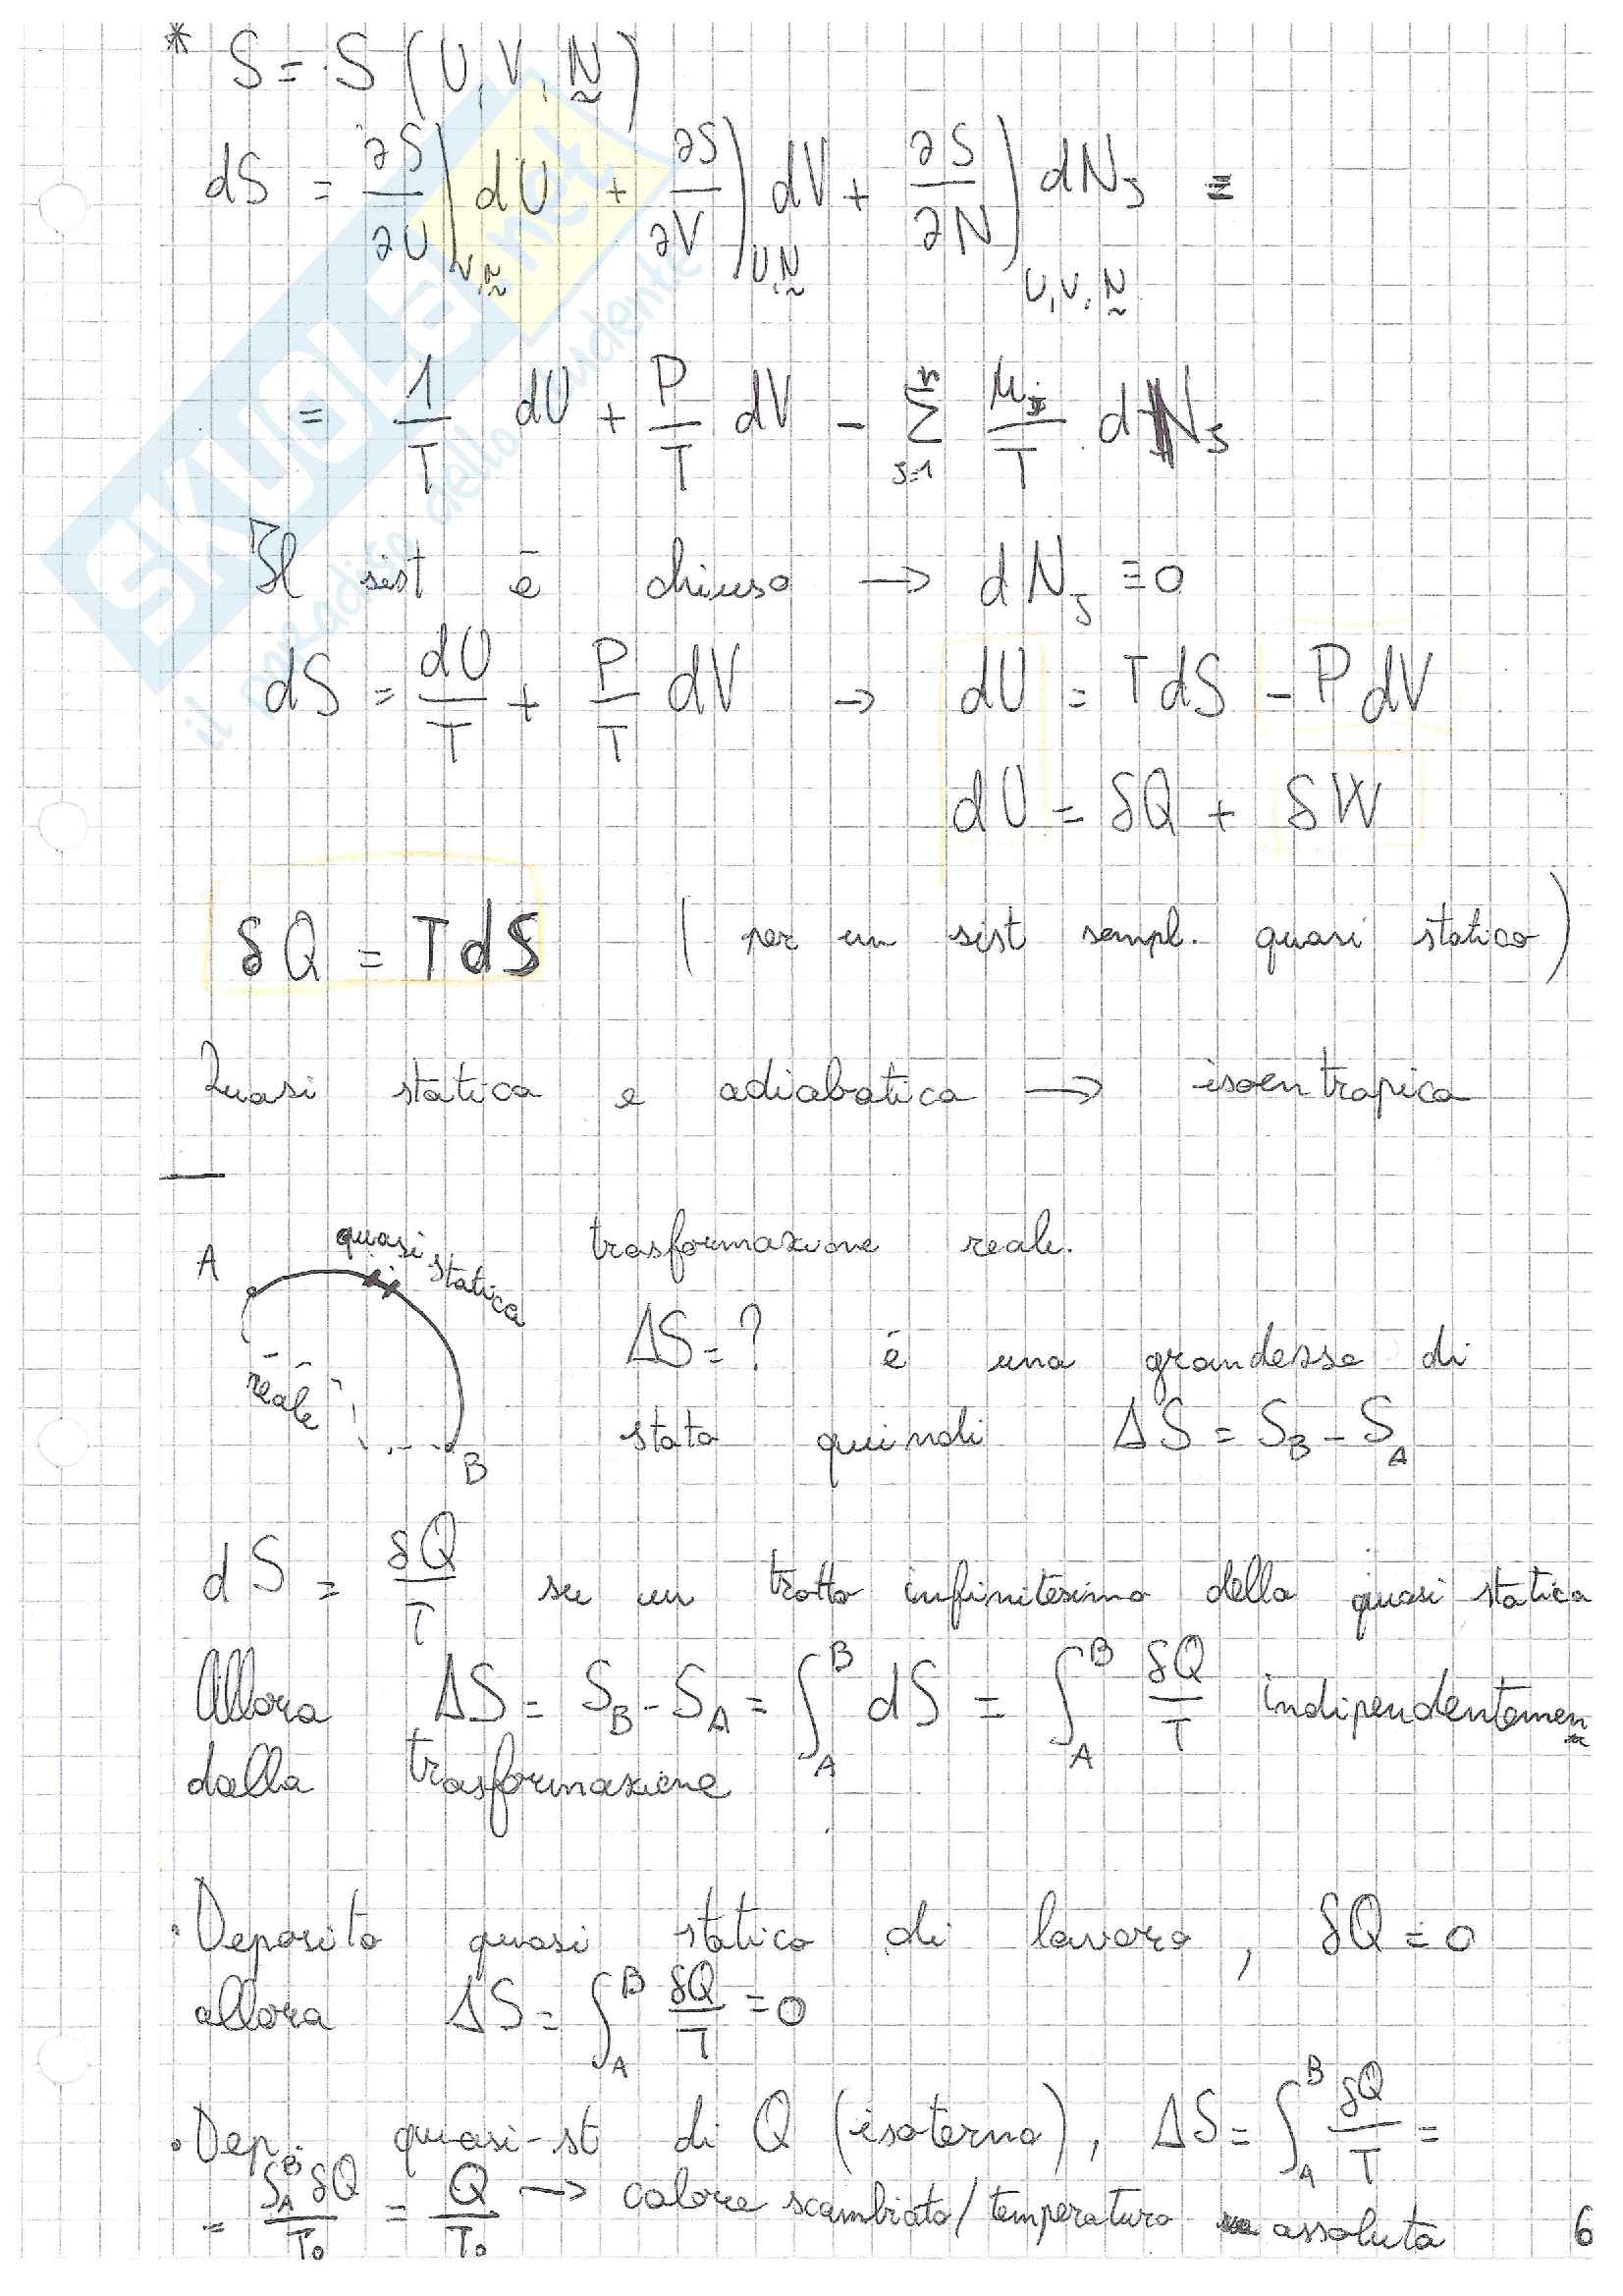 * S = S (U, V, N)
dS = ∂S/∂U)V,N dU + ∂S/∂V)U,N dV + ∂S/∂N)U,V,N dNJ =
= 1/T dU + P/T dV - Σ J=1 n μj/T dNJ
Il sist è chiuso → dNJ ≡ 0
dS = dU/T + P/T dV → dU = T dS - P dV
dU = δQ + δW
δQ = T dS ( per un sist sempl. quasi statico )
Quasi statica e adiabatica → isoentropica
A quasi statica trasformazione reale.
ΔS = ? è una grandezza di
reale
stato quindi ΔS = SB - SA
B
dS = δQ/T su un tratto infinitesimo della quasi statica
Allora ΔS = SB - SA = ∫A^B dS = ∫A^B δQ/T indipendentemen
dalla trasformazione
• Deposito quasi statico di lavoro, δQ = 0
allora ΔS = ∫A^B δQ/T = 0
• Dep. quasi-st di Q (isotermo), ΔS = ∫A^B δQ/T =
= ∫A^B δQ/T₀ = Q/T₀ → calore scambiato/temperatura assoluta 6
SKUOLA.net
il paradiso dello studente